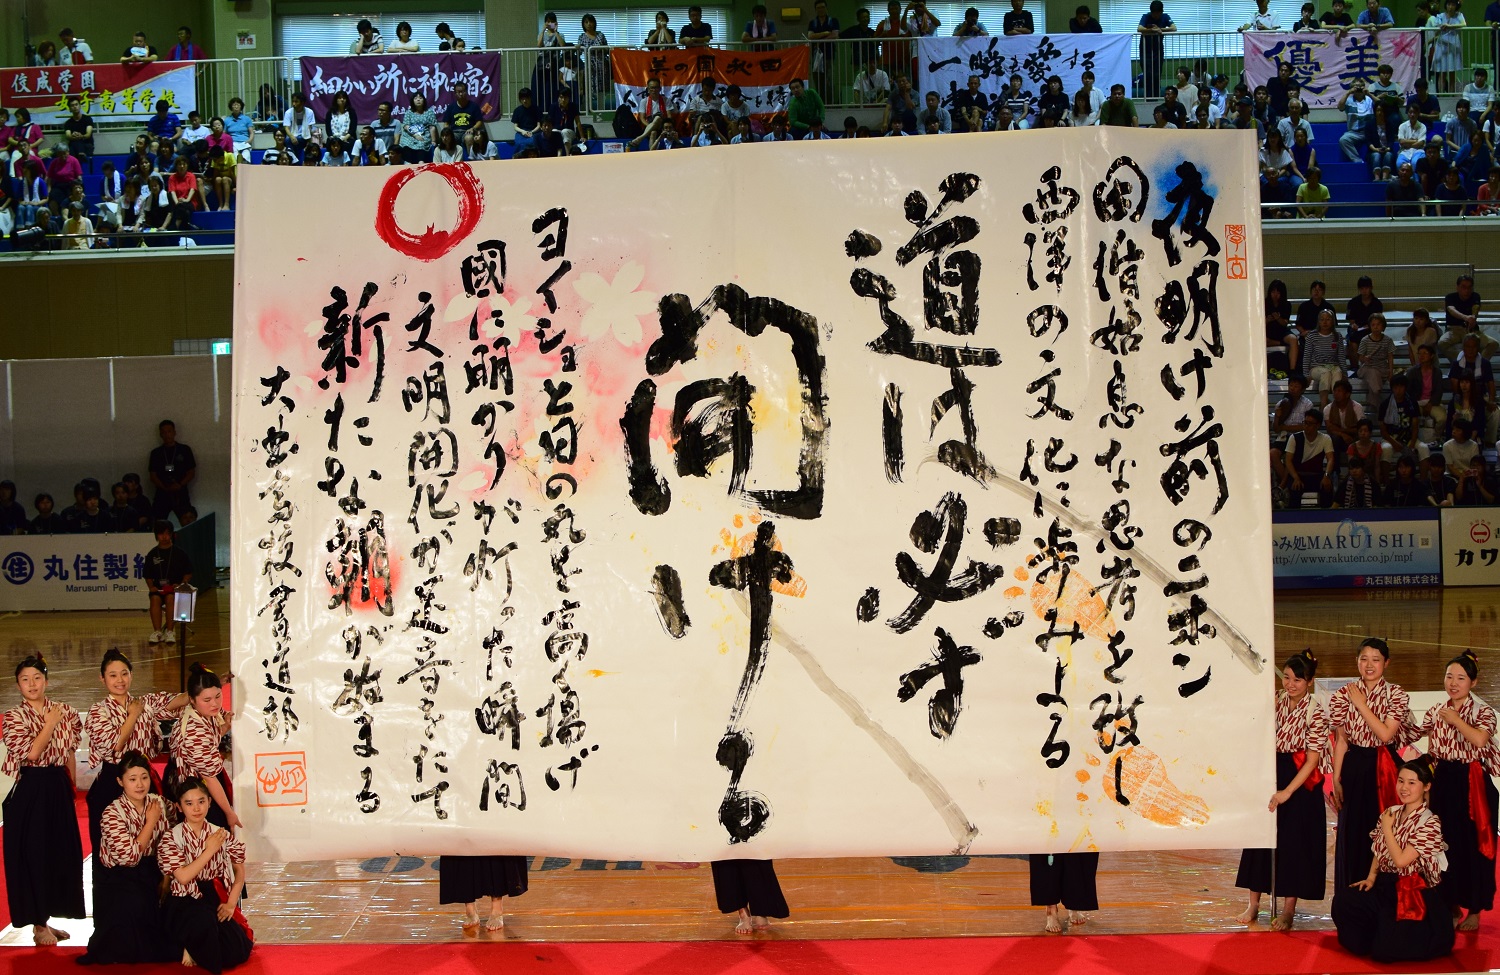 佼成学園
女子高等学校
細かい所に神は宿る
美の国秋田
一瞬を愛する
優美
夜明け前のニホン
因循姑息な思考を改し
西洋の文化に歩みよる
道は必ず
開ける
ヨイショと日の丸を高く揚げ
國に明かりが灯った瞬間
文明開化が足音をたて
新たな朝が始まる
大曲高校書道部
学古
丸住製紙
Marusumi Paper
かみ処MARUISHI
http://www.rakuten.co.jp/mpf
丸石製紙株式会社
カワ